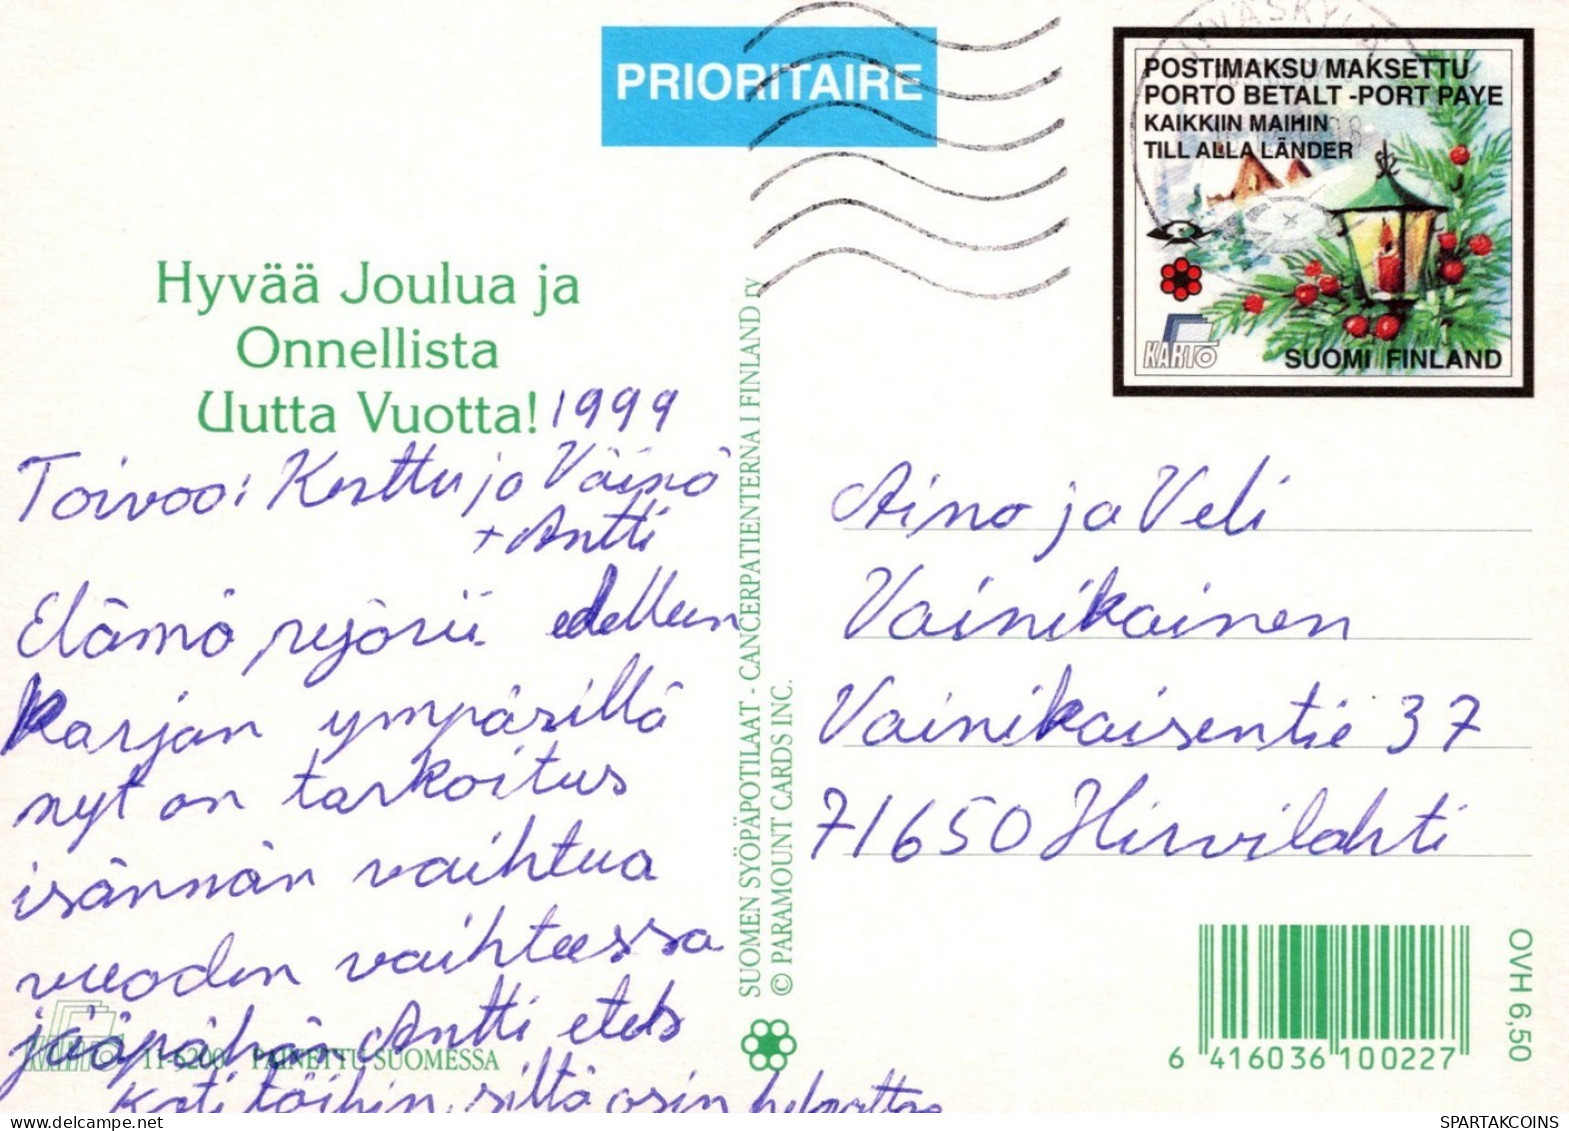 JYVÄSKYLÄ
PRIORITAIRE
POSTIMAKSU MAKSETTU
PORTO BETALT -PORT PAYE
KAIKKIIN MAIHIN
TILL ALLA LÄNDER
KARTO
SUOMI FINLAND
Hyvää Joulua ja
Onnellista
Uutta Vuotta! 1999
Toivoo: Kerttu ja Väinö
+ Antti
Elämä pyörii edelleen
Karjan ympärillä
nyt on tarkoitus
isännän vaihtua
vuoden vaihteessa
jääpähän Antti
Koti töihin, siltä osin
KARTO 11-6200 PAINETTU SUOMESSA
SUOMEN SYÖPÄPOTILAAT - CANCERPATIENTERNA I FINLAND ry
© PARAMOUNT CARDS INC.
Aino ja Veli
Vainikainen
Vainikaisentie 37
71650 Hirvilahti
OVH 6,50
6 416036 100227
SPARTAKCOINS.COM